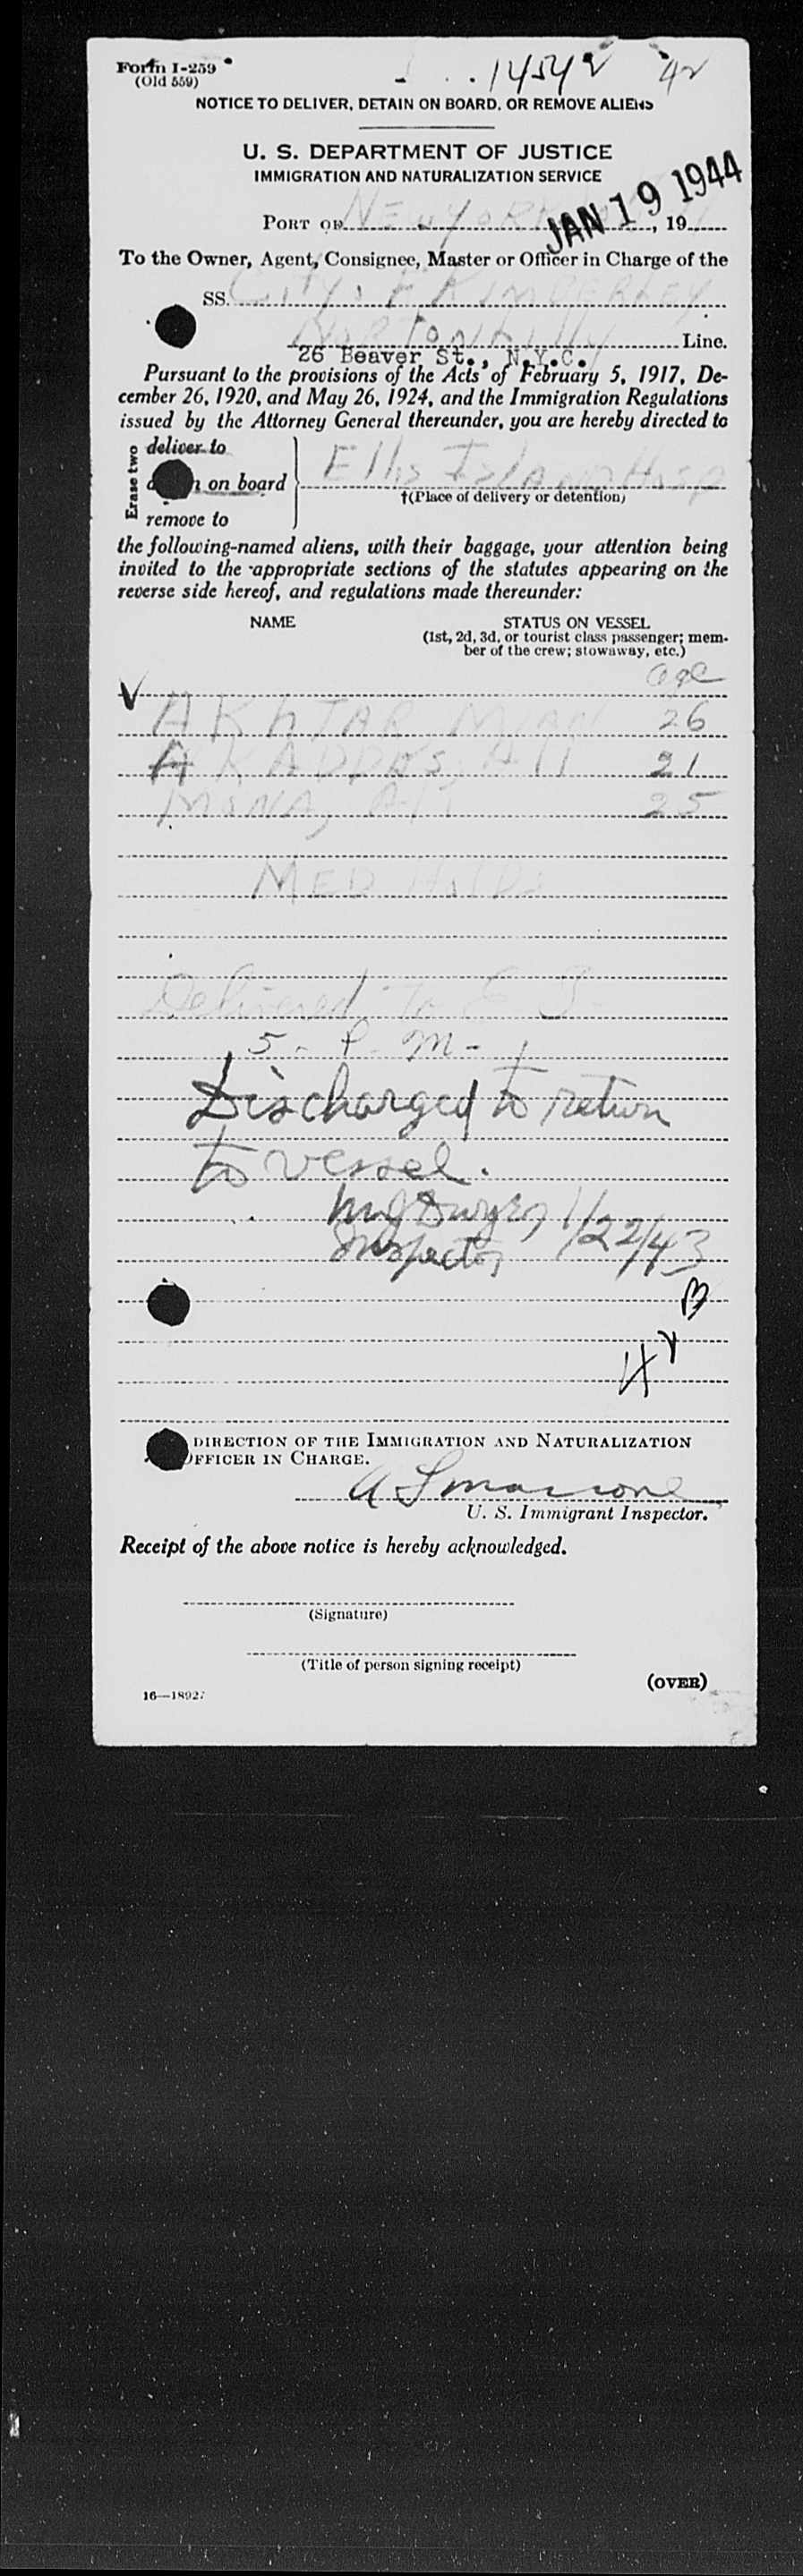 Form I-259
(Old 559)
14542 42
NOTICE TO DELIVER, DETAIN ON BOARD, OR REMOVE ALIENS
U. S. DEPARTMENT OF JUSTICE
IMMIGRATION AND NATURALIZATION SERVICE
JAN 19 1944
PORT OF NEW YORK, 19
To the Owner, Agent, Consignee, Master or Officer in Charge of the
SS. City of KIMBERLEY
Line.
26 Beaver St., N.Y.C.
Pursuant to the provisions of the Acts of February 5, 1917, De-
cember 26, 1920, and May 26, 1924, and the Immigration Regulations
issued by the Attorney General thereunder, you are hereby directed to
Erase two
deliver to
on board
remove to
Ellis Island Hosp
†(Place of delivery or detention)
the following-named aliens, with their baggage, your attention being
invited to the appropriate sections of the statutes appearing on the
reverse side hereof, and regulations made thereunder:
NAME
STATUS ON VESSEL
(1st, 2d, 3d, or tourist class passenger; mem-
ber of the crew; stowaway, etc.)
age
AKHTAR MIAN 26
Ali 21
MONA, Ali 25
MED Holds
Delivered To E I
5 - P. M -
Discharged to return
to vessel.
1/22/43
Inspector
DIRECTION OF THE IMMIGRATION AND NATURALIZATION
OFFICER IN CHARGE.
U. S. Immigrant Inspector.
Receipt of the above notice is hereby acknowledged.
(Signature)
(Title of person signing receipt)
(OVER)
16—18927